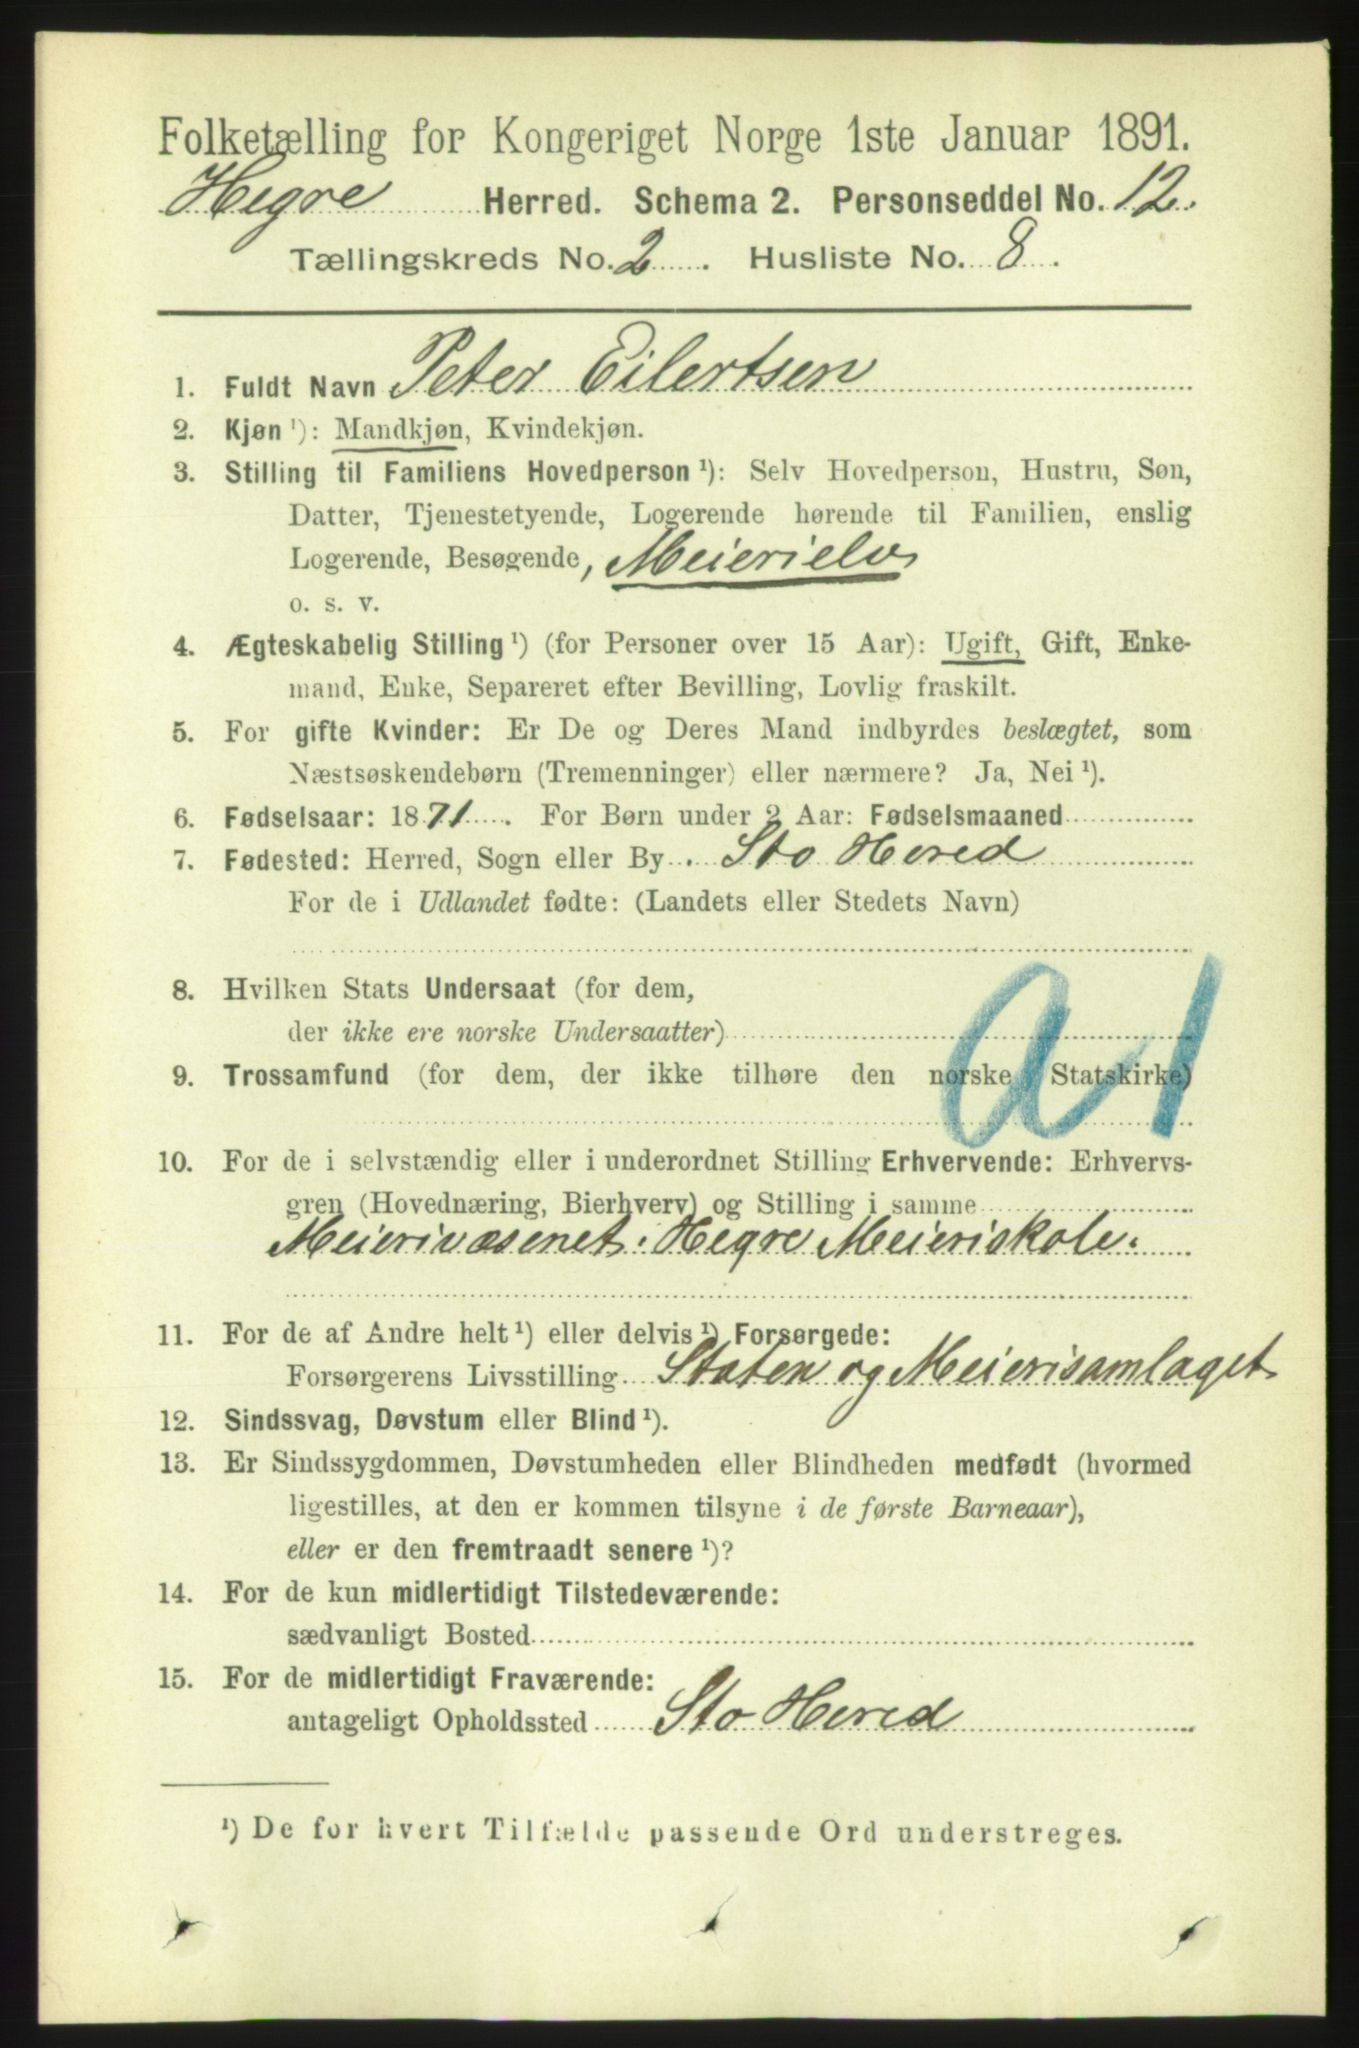 Folketælling for Kongeriget Norge 1ste Januar 1891.
Hegre Herred. Schema 2. Personseddel No. 12.
Tællingskreds No. 2. Husliste No. 8.
1. Fuldt Navn Peter Eilertsen
2. Kjøn ¹): Mandkjøn, Kvindekjøn.
3. Stilling til Familiens Hovedperson ¹): Selv Hovedperson, Hustru, Søn,
Datter, Tjenestetyende, Logerende hørende til Familien, enslig
Logerende, Besøgende, Meierielev
o. s. v.
4. Ægteskabelig Stilling ¹) (for Personer over 15 Aar): Ugift, Gift, Enke-
mand, Enke, Separeret efter Bevilling, Lovlig fraskilt.
5. For gifte Kvinder: Er De og Deres Mand indbyrdes beslægtet, som
Næstsøskendebørn (Tremenninger) eller nærmere? Ja, Nei ¹).
6. Fødselsaar: 1871. For Børn under 2 Aar: Fødselsmaaned
7. Fødested: Herred, Sogn eller By. Sto Hered
For de i Udlandet fødte: (Landets eller Stedets Navn)
8. Hvilken Stats Undersaat (for dem,
der ikke ere norske Undersaatter)
a 1
9. Trossamfund (for dem, der ikke tilhøre den norske Statskirke)
10. For de i selvstændig eller i underordnet Stilling Erhvervende: Erhvervs-
gren (Hovednæring, Bierhverv) og Stilling i samme
Meierivæsenet. Hegre Meieriskole.
11. For de af Andre helt ¹) eller delvis ¹) Forsørgede:
Forsørgerens Livsstilling Staten og Meierisamlaget
12. Sindssvag, Døvstum eller Blind ¹).
13. Er Sindssygdommen, Døvstumheden eller Blindheden medfødt (hvormed
ligestilles, at den er kommen tilsyne i de første Barneaar),
eller er den fremtraadt senere ¹)?
14. For de kun midlertidigt Tilstedeværende:
sædvanligt Bosted
15. For de midlertidigt Fraværende:
antageligt Opholdssted Sto Hered
¹) De for hvert Tilfælde passende Ord understreges.